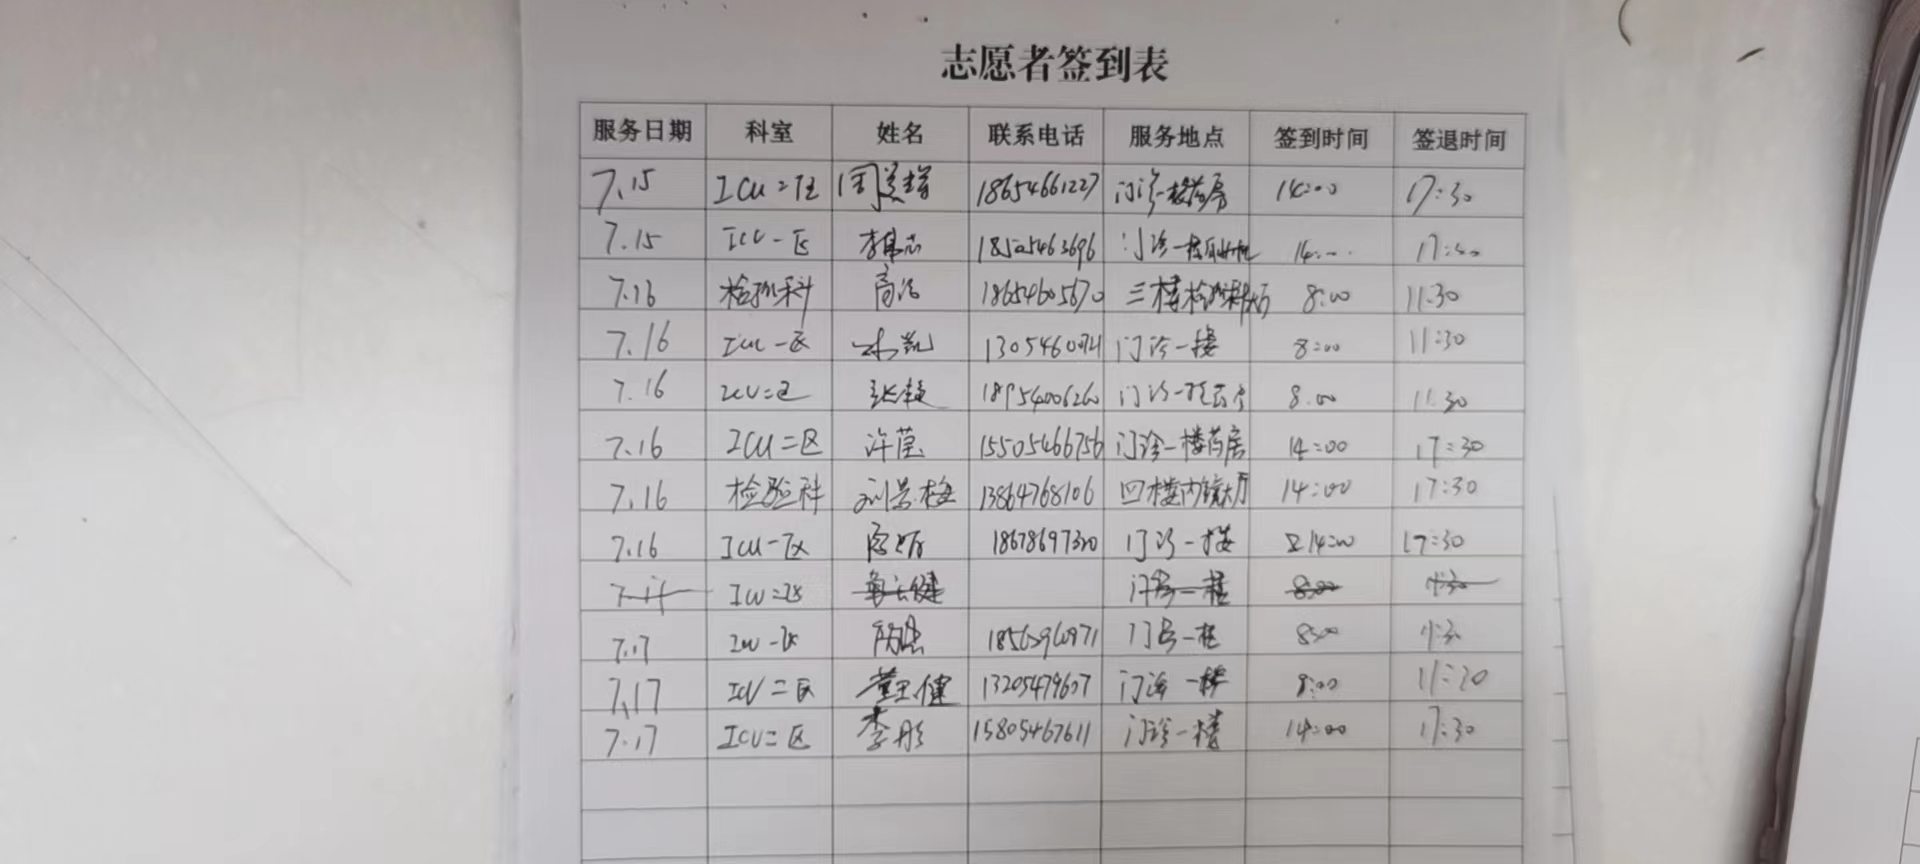 志愿者签到表
服务日期 科室 姓名 联系电话 服务地点 签到时间 签退时间
7.15 ICU二区 18654661227 门诊一楼药房 14:00 17:30
7.15 ICU一区 18505463696 门诊一楼 14:00 17:30
7.16 检验科 高洁 18654605670 三楼检验科大厅 8:00 11:30
7.16 ICU一区 门诊一楼 8:00 11:30
7.16 ICU二区 18954006260 门诊一楼 8:00 11:30
7.16 ICU二区 许莹 15505466756 门诊一楼药房 14:00 17:30
7.16 检验科 刘景梅 13864768106 四楼内镜大厅 14:00 17:30
7.16 ICU一区 18678697320 门诊一楼 14:00 17:30
ICU二区 门诊一楼 8:00 11:30
7.17 ICU一区 门诊一楼 8:00 11:30
7.17 ICU二区 董玉健 13205479607 门诊一楼 8:00 11:30
7.17 ICU二区 李彤 15805467611 门诊一楼 14:00 17:30